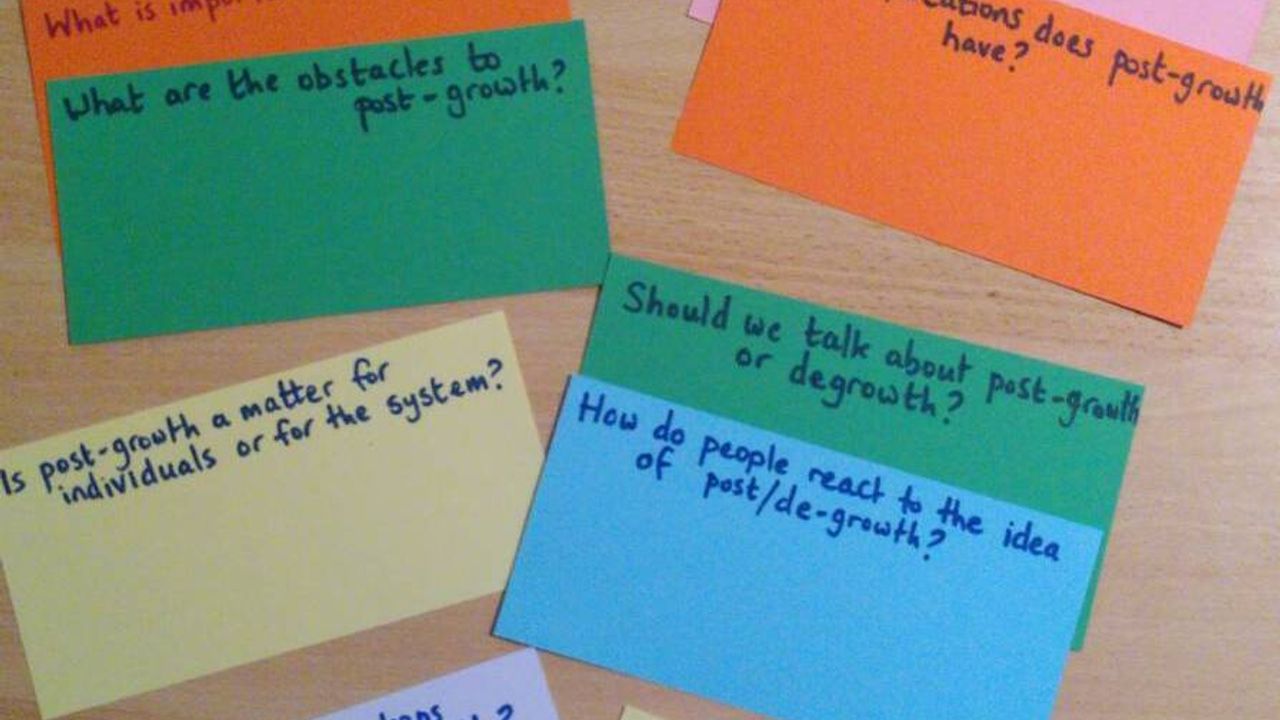 What is
What are the obstacles to
post-growth?
does post-growth
have?
Should we talk about post-growth
or degrowth?
Is post-growth a matter for
individuals or for the system?
How do people react to the idea
of post/de-growth?
?